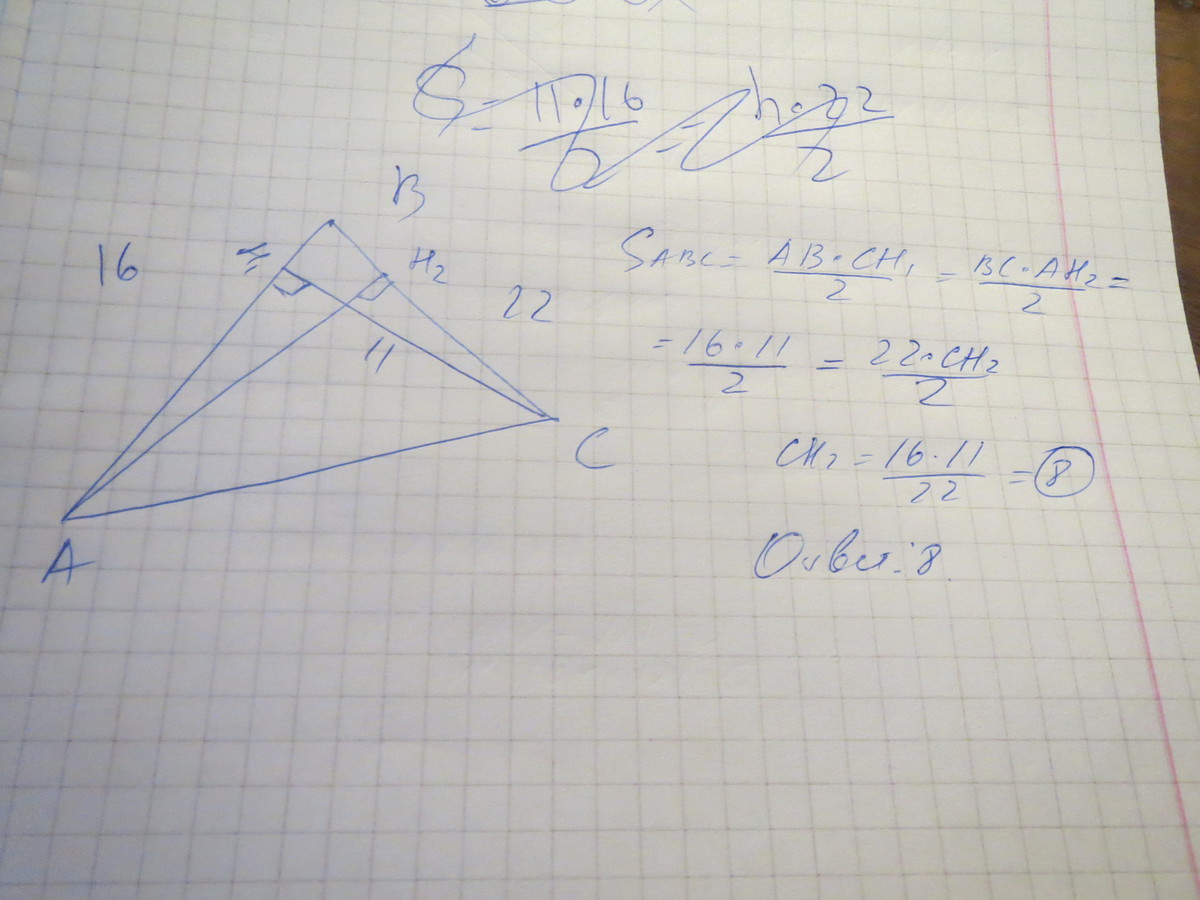 S = 11·16/2 = h·22/2
B
16
H₁
H₂
22
11
C
A
S_ABC = AB·CH₁/2 = BC·AH₂/2 =
= 16·11/2 = 22·CH₂/2
CH₂ = 16·11/22 = 8
Ответ: 8.